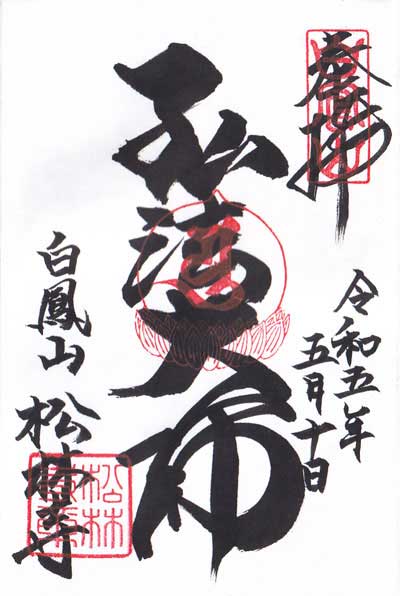 奉拝
令和五年
五月十日
弘法大師
白鳳山 松林寺
松林